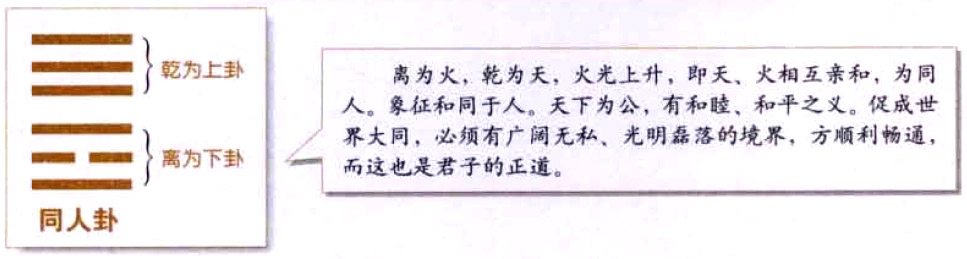 乾为上卦
离为下卦
同人卦
离为火，乾为天，火光上升，即天、火相互亲和，为同
人。象征和同于人。天下为公，有和睦、和平之义。促成世
界大同，必须有广阔无私、光明磊落的境界，方顺利畅通，
而这也是君子的正道。